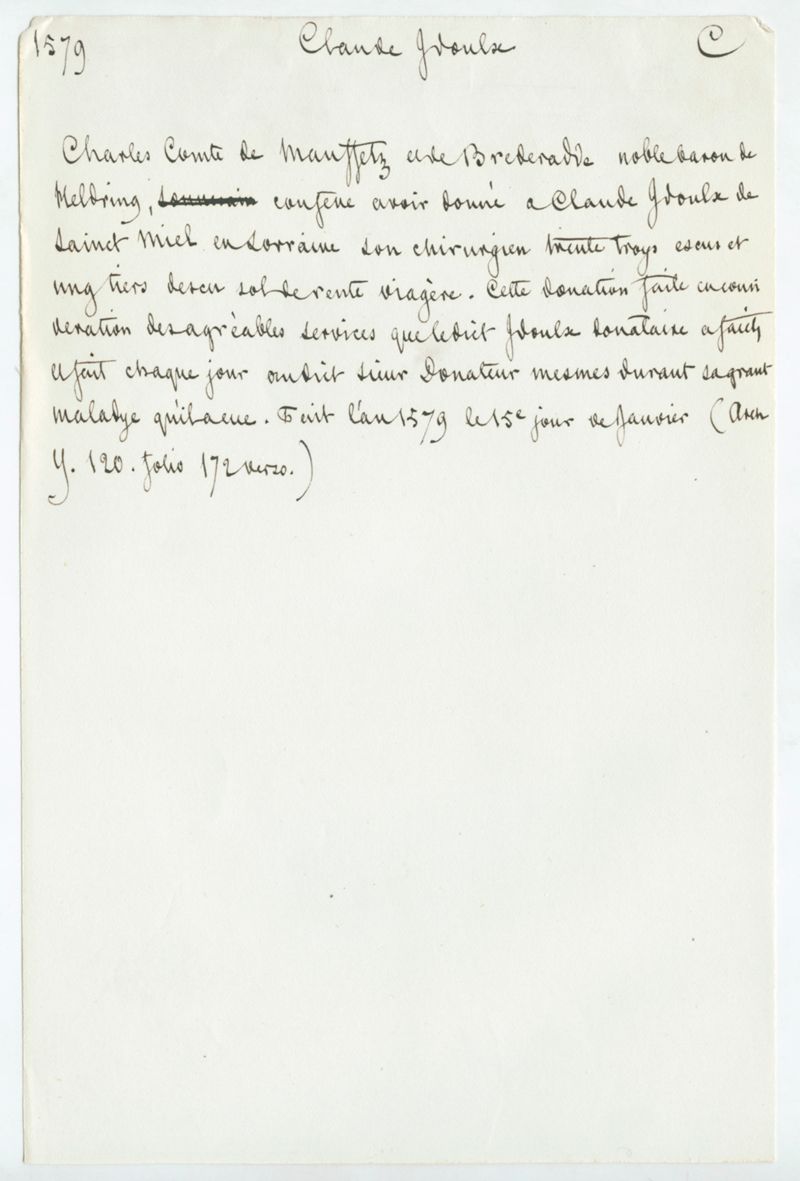 1579 Claude Jdoulx C
Charles Comte de Mauffetz et de Brederadde noble baron de
Meldring, confene avoir donné a Claude Jdoulx de
Sainct Miel en Lorraine son chirurgien trente troys escus et
ung tiers descu sol de rente viagère. Cette donation faite en consi
deration des agréables services que ledict Jdoulx donataire a faicts
et fait chaque jour audict sieur Donateur mesmes durant sa grant
maladye qu'il a eue. Fait l'an 1579 le 15e jour de Janvier (Arch
Y. 120. folio 172 verso.)